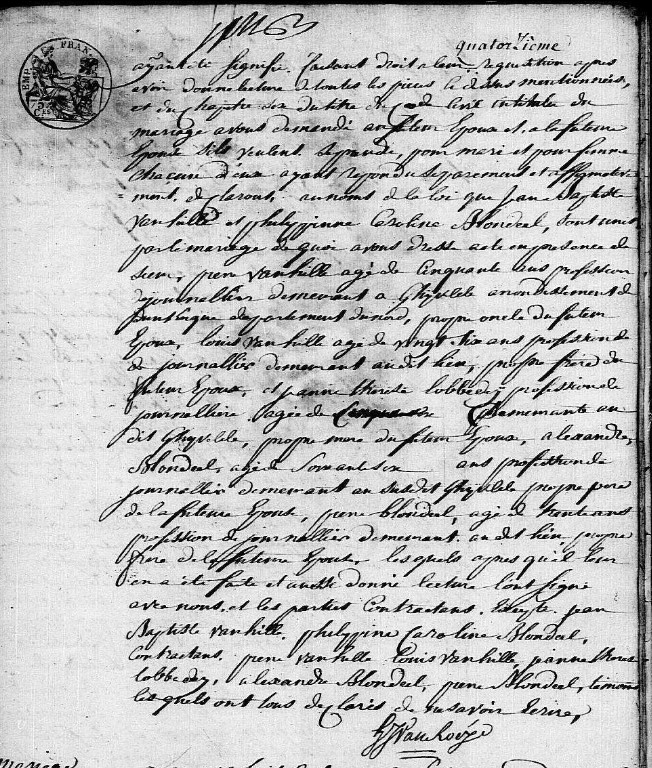 quatorzième
EMPIRE FRAN
ayant été signifié. faisant droit a leur requisition apres
avoir donné lecture de toutes les pieces ci dessus mentionnées,
et du chapitre six du titre du Code civil intitulé du
mariage avons demandé au futeur Epoux et a la future
Epouse s'ils veulent se prendre, pour mari et pour femme
chacune d'eux ayant repondu séparement et affirmative
-ment, declarons au nom de la loi que Jean Baptiste
vanhille et philippinne Caroline Blondeel, sont unis
par le mariage de quoi avons dressé acte en presence de
sieur, piere vanhille agé de Cinquante ans profession
de journallier demeurant a Ghyvelde arrondissement de
dunkerque departement du nord, propre oncle du futeur
Epoux, louis vanhille agé de vingt six ans profession de
de journallier demeurant au dit lieu, propre frere du
futeur Epoux, et jeanne therese lobbedey profession de
journalliere agée de Cinquante demeurante au
dit Ghyvelde, propre mere du futeur Epoux, alexandre
Blondeel, agé de Soixante six ans profession de
journallier demeurant au susdit Ghyvelde propre pere
de la future Epouse, piere blondeel, agé de trente ans
profession de journallier demeurant au dit lieu propre
frere de la future Epouse, lesquels apres qu'il leur
en a été fait et aussi donné lecture l'ont signé
avec nous, et les parties Contractans. Excepté jean
Baptiste vanhille, philippine Caroline Blondeel,
contractans, piere vanhille Louis vanhille, jeanne therese
lobbedey, alexandre Blondeel, piere Blondeel, temoins
lesquels ont tous declarés de ne savoir Ecrire,
mariage